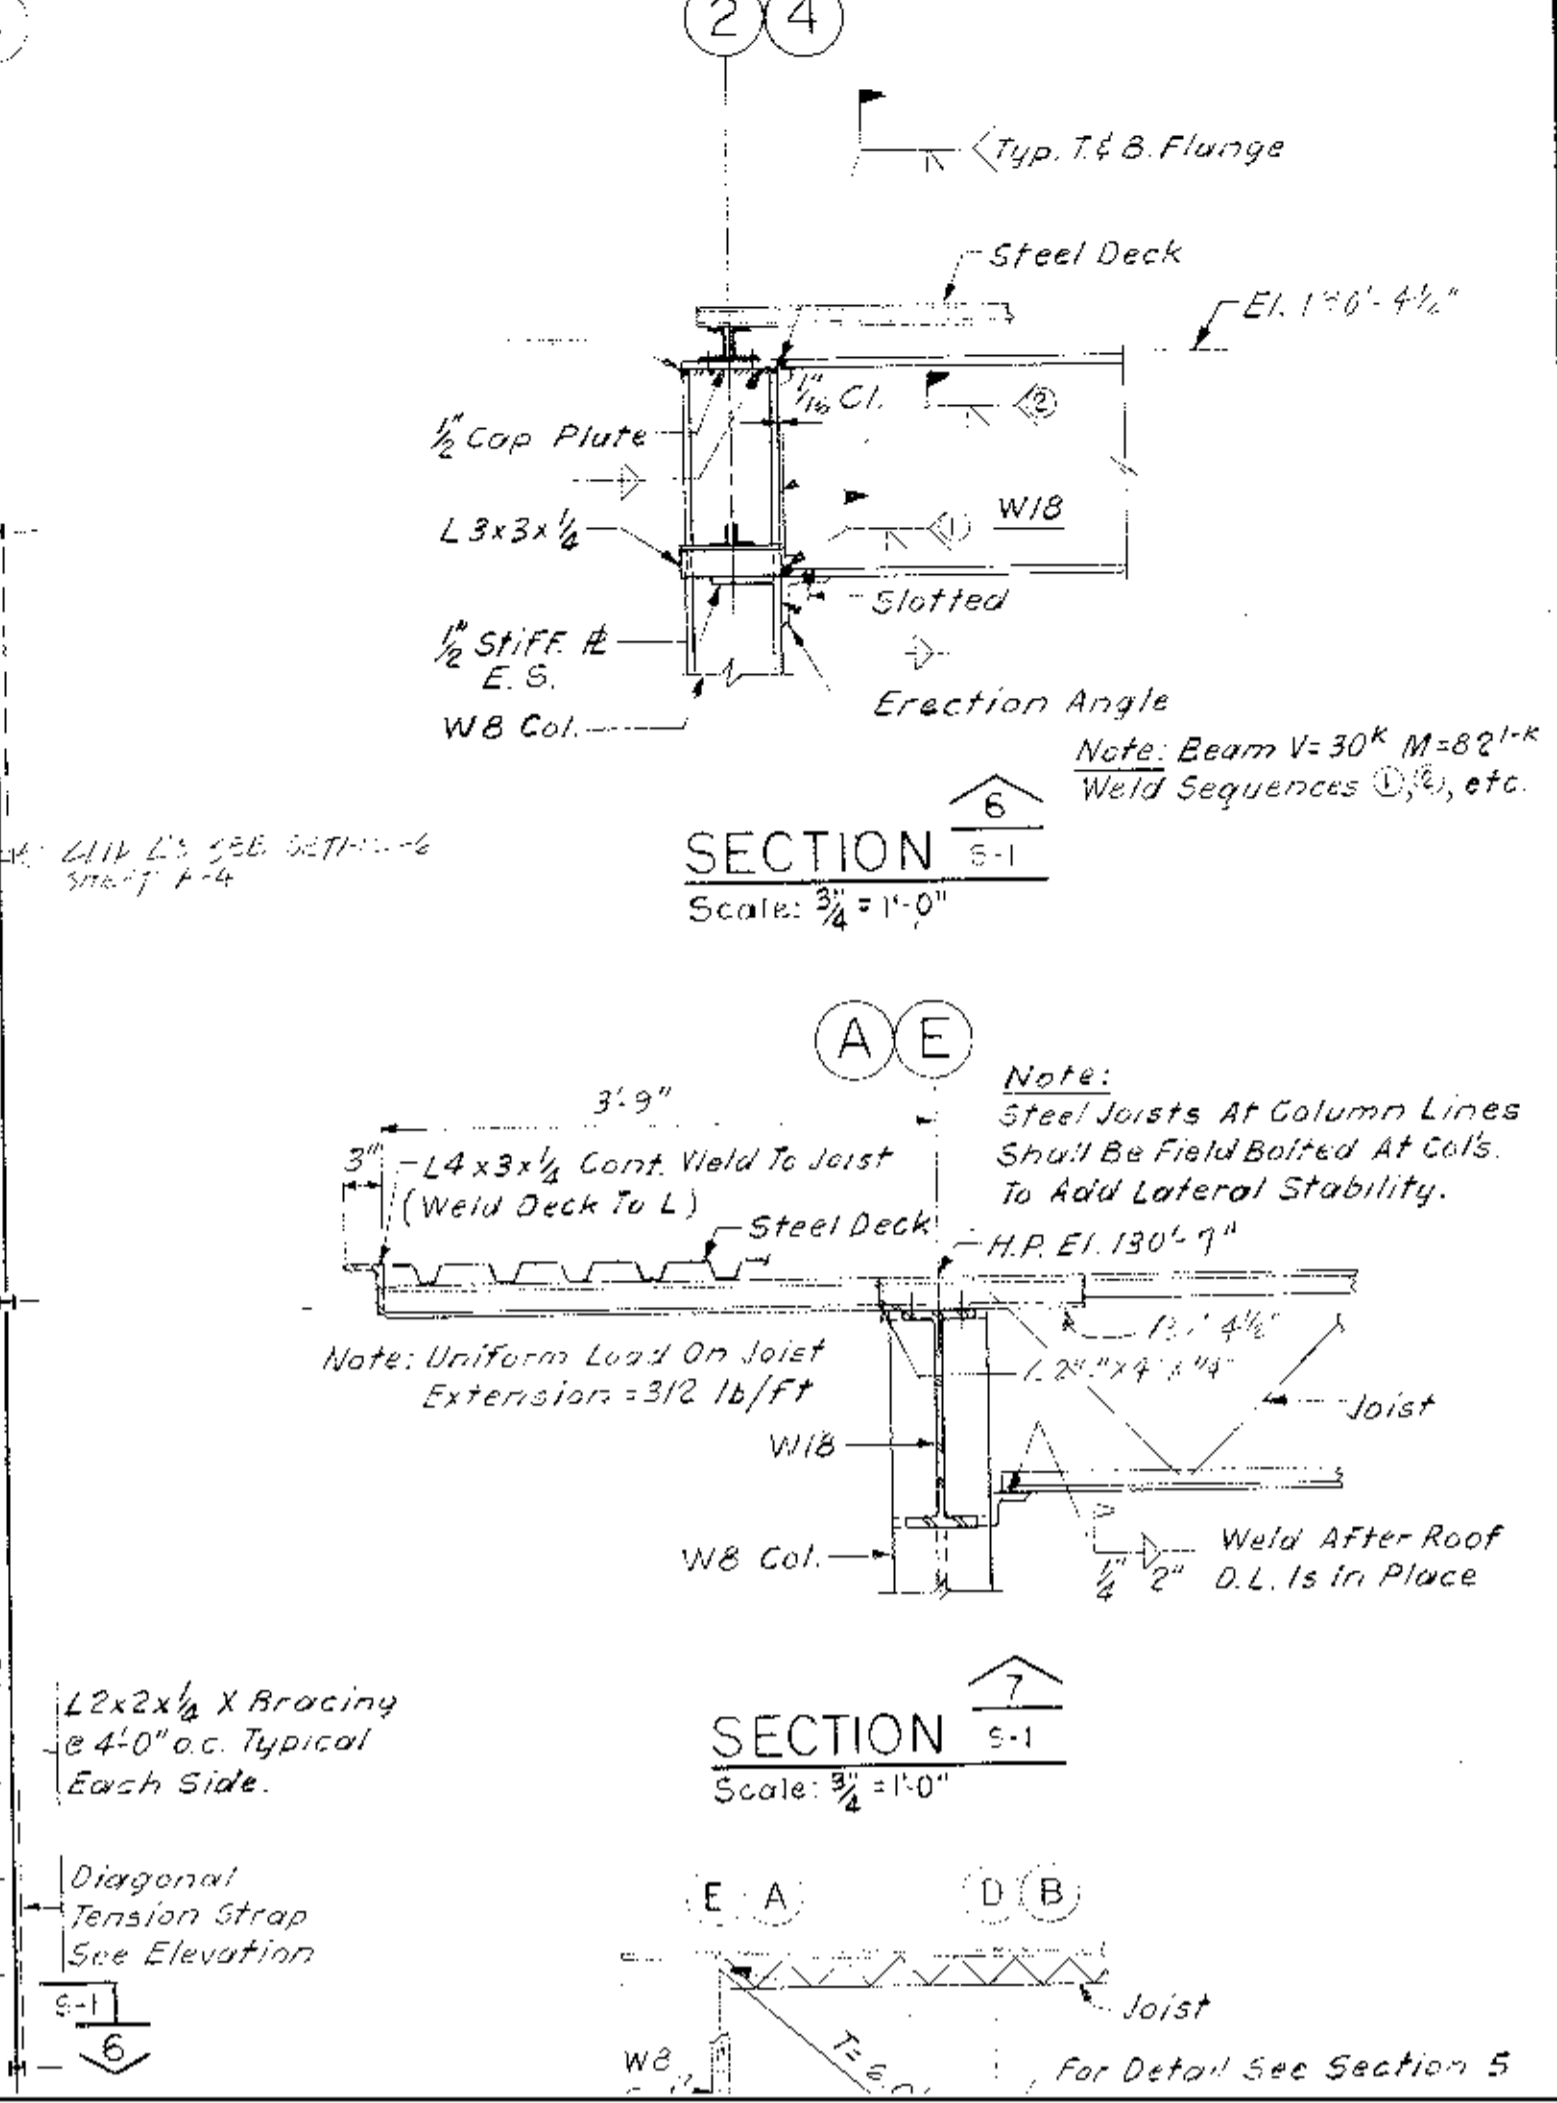 2 4
Typ. T. & B. Flange
Steel Deck
El. 130'-4½"
1/16" Cl.
2
½" Cap Plate
1
W18
L 3x3x¼
Slotted
½" Stiff. PL
E. S.
W8 Col.
Erection Angle
Note: Beam V=30K M=82'-K
Weld Sequences 1, 2, etc.
6
SECTION S-1
Scale: ¾" = 1'-0"
SEE
A E
Note:
Steel Joists At Column Lines
Shall Be Field Bolted At Col's.
To Add Lateral Stability.
3'-9"
3"
L4x3x¼ Cont. Weld To Joist
(Weld Deck To L)
Steel Deck
H.P. El. 130'-7"
4½"
Note: Uniform Load On Joist
Extension = 312 lb/ft
Joist
W18
W8 Col.
¼" 2"
Weld After Roof
D.L. Is in Place
7
SECTION S-1
Scale: ¾" = 1'-0"
L2x2x¼ X Bracing
@ 4'-0" o.c. Typical
Each Side.
Diagonal
Tension Strap
See Elevation
S-1
6
E A D B
Joist
W8
T=
For Detail See Section 5